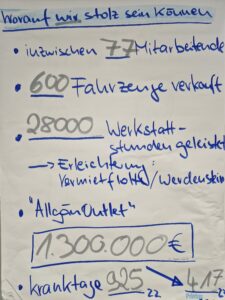 Worauf wir stolz sein können
• inzwischen 77 Mitarbeitende
• 600 Fahrzeuge verkauft
• 28000 Werkstatt-
stunden geleistet
→ Erleichterung:
Vermietflotte/Werdenstein
• "AllgäuOutlet"
1.300.000€
• kranktage 925 22 → 417